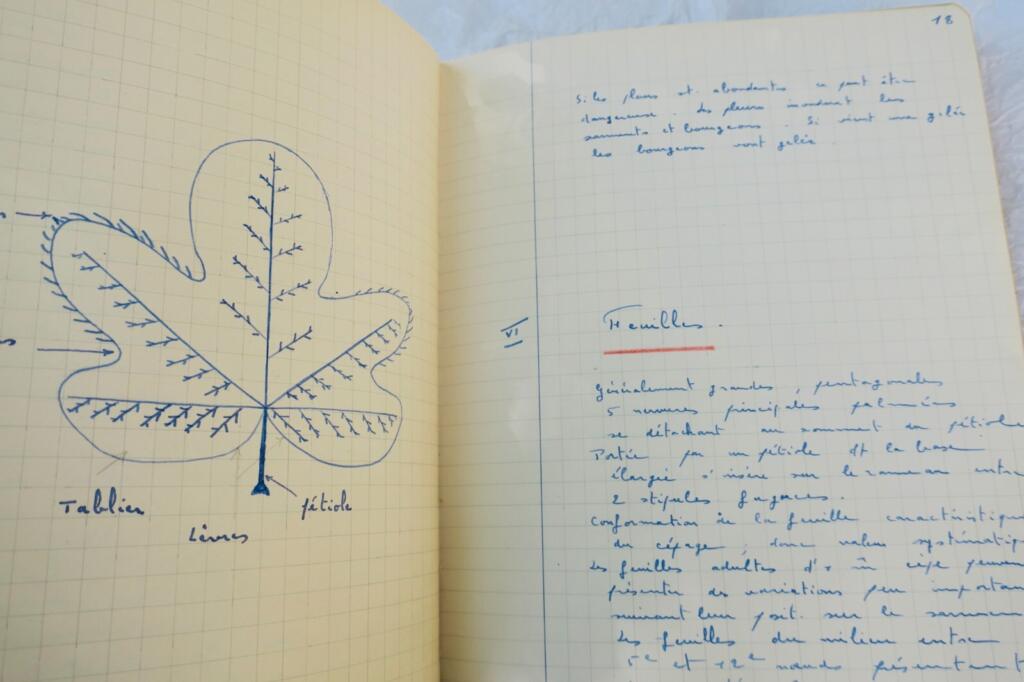 s
s
Tablier
Lèvres
pétiole
18
Si les pleurs st abondants ce peut être
dangereuse. Les pleurs inondent les
sarments et bourgeons. Si vient une gelée
les bourgeons sont gelés
VI
Feuilles.
Généralement grandes, pentagonales
5 nervures principales palmées
se détachant au sommet du pétiole
Portée par un pétiole dt la base
élargie s'insère sur le rameau entre
2 stipules fugaces.
Conformation de la feuille caractéristique
du cépage, donc valeur systématiq
Les feuilles adultes d' m cépe peuven
présenter des variations peu importan
suivant leur posit. sur le sarmen
Les feuilles du milieu entre
5e et 12e nœuds présentent